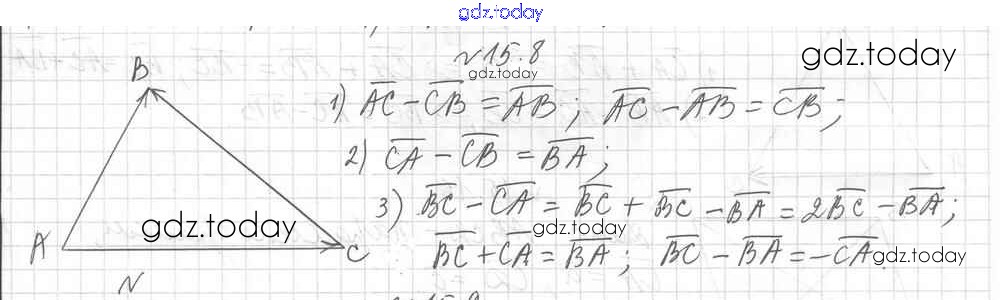 gdz.today
№15.8
gdz.today
gdz.today
B
1) \overline{AC} - \overline{CB} = \overline{AB}; \overline{AC} - \overline{AB} = \overline{CB};
2) \overline{CA} - \overline{CB} = \overline{BA};
3) \overline{BC} - \overline{CA} = \overline{BC} + \overline{BC} - \overline{BA} = 2\overline{BC} - \overline{BA};
gdz.today
gdz.today
A
C
\overline{BC} + \overline{CA} = \overline{BA}; \overline{BC} - \overline{BA} = -\overline{CA}.
gdz.today
N